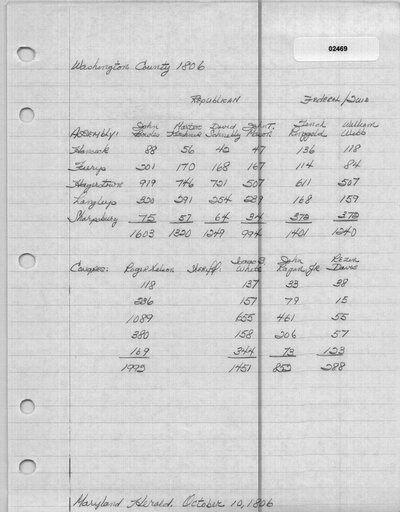 02469
Washington County 1806
REPUBLICAN FEDERAL/QUID
ASSEMBLY: John Bowles Martin David John T. Tench Ringgold William Webb
Hancock 88 56 42 47 136 118
201 170 168 167 114 84
Hagerstown 919 746 721 507 611 507
320 291 254 239 168 159
Sharpsburg 75 57 64 34 372 372
1603 1320 1249 994 1401 1240
Congress: Roger Nelson Sheriff: Isaac S. White John Ragan Jr. Rezin Davis
118 137 33 38
236 157 79 15
1089 655 461 55
380 158 206 57
169 344 73 123
1992 1451 852 288
Maryland Herald. October 10, 1806